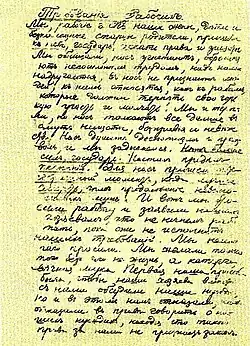 Требования Рабочих
Мы, рабочие г. наши жены, дети и
беспомощные старцы родители, пришли
к тебе, государь, искать правды и защиты
Мы обнищали, нас угнетают, обреме
няют непосильным трудом, над нами
надругаются, в нас не признают лю
дей, к нам относятся, как к рабам,
которые должны терпеть свою горь
кую участь и молчать. Мы и терпе
ли, но нас толкают все дальше в
омут нищеты, бесправия и невеже
ства, нас душит деспотизм и произ
вол и мы задыхаемся. Нет больше
сил, государь. Настал предел тер
пению. Для нас пришел тот
страшный момент, когда лучше
смерть, чем продолжение невыно
симых мук. И вот мы бро
сили работу и заявили нашим
хозяевам, что не начнем рабо
тать, пока они не исполнят
наших требований. Мы
просили. Мы желали
того без чего не жизнь, а каторга
вечная мука. Первая наша прось
ба была, чтобы наши хозяева вместе
с нами обсудили наши нужды
но и в этом нам отказали, нам
отказали в праве говорить о на
ших нуждах, находя, что такого
права за нами не признает закон.